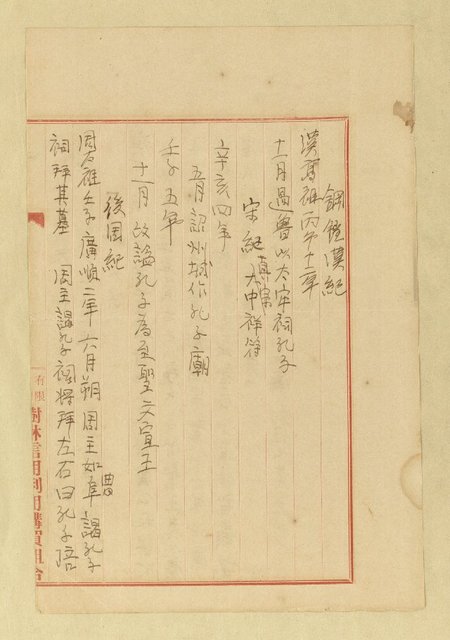 鋼鑑漢紀
漢高祖丙午十二年
十一月過魯以太牢祠孔子
宋紀 真宗大中祥符
辛亥四年
五月詔州城作孔子廟
壬子五年
十一月改謚孔子為至聖文宣王
後周紀
周 壬子廣順二年六月朔周主如曲阜謁孔子
祠拜其墓 周主謁孔子祠將拜左右曰孔子陪
有限 樹林信用利用購買組合